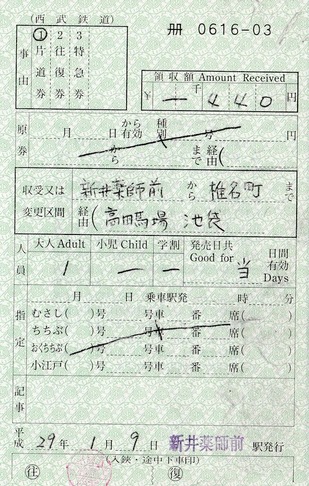 (西武鉄道) 冊 0616-03
事由 ①片道券 2往復券 3特急券
領収額 Amount Received
¥ 一 千 440 円
原券 月 日から有効 種別 号
から まで 経由(
収受又は変更区間 新井薬師前 から 椎名町 まで
経由(高田馬場 池袋
人員 大人Adult 小児Child 学割 発売日共 Good for 日間有効 Days
1 — — 当
指定 月 日 乗車駅発 時 分
むさし( )号 号車 番 席( )
ちちぶ( )号 号車 番 席( )
おくちちぶ( )号 号車 番 席( )
小江戸( )号 号車 番 席( )
記事
平成 29年 1月 9日 新井薬師前 駅発行
(入鋏・途中下車印)
往 復